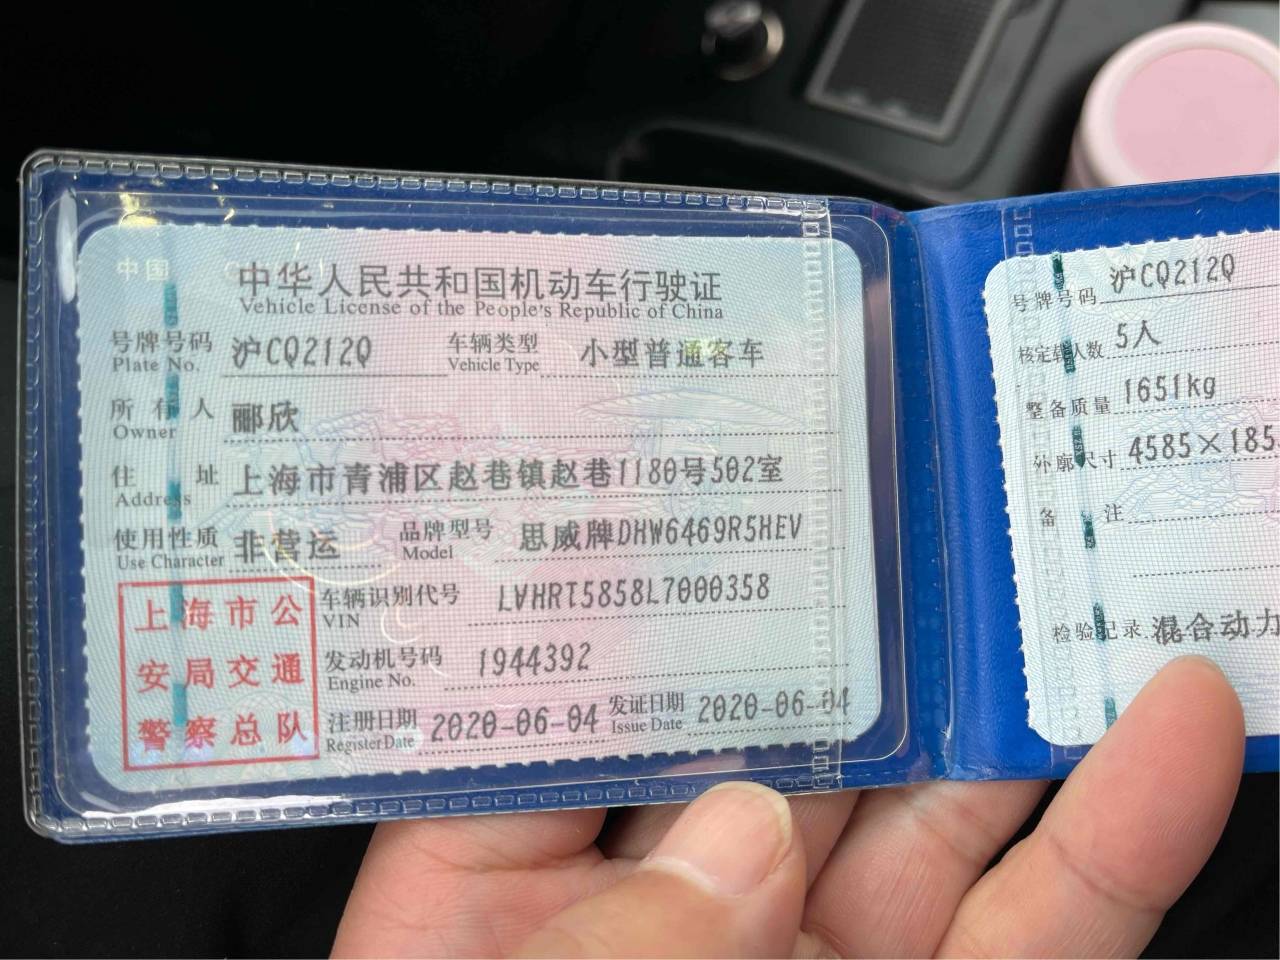 中国
中华人民共和国机动车行驶证
Vehicle License of the People's Republic of China
号牌号码 沪CQ212Q 车辆类型 小型普通客车
Plate No. Vehicle Type
所有人 郦欣
Owner
住址 上海市青浦区赵巷镇赵巷1180号502室
Address
使用性质 非营运 品牌型号 思威牌DHW6469R5HEV
Use Character Model
上海市公
安局交通
警察总队
车辆识别代号 LVHRT5858L7000358
VIN
发动机号码 1944392
Engine No.
注册日期 2020-06-04 发证日期 2020-06-04
Register Date Issue Date
号牌号码 沪CQ212Q
核定载人数 5人
整备质量 1651kg
外廓尺寸 4585×185
备注
检验记录 混合动力